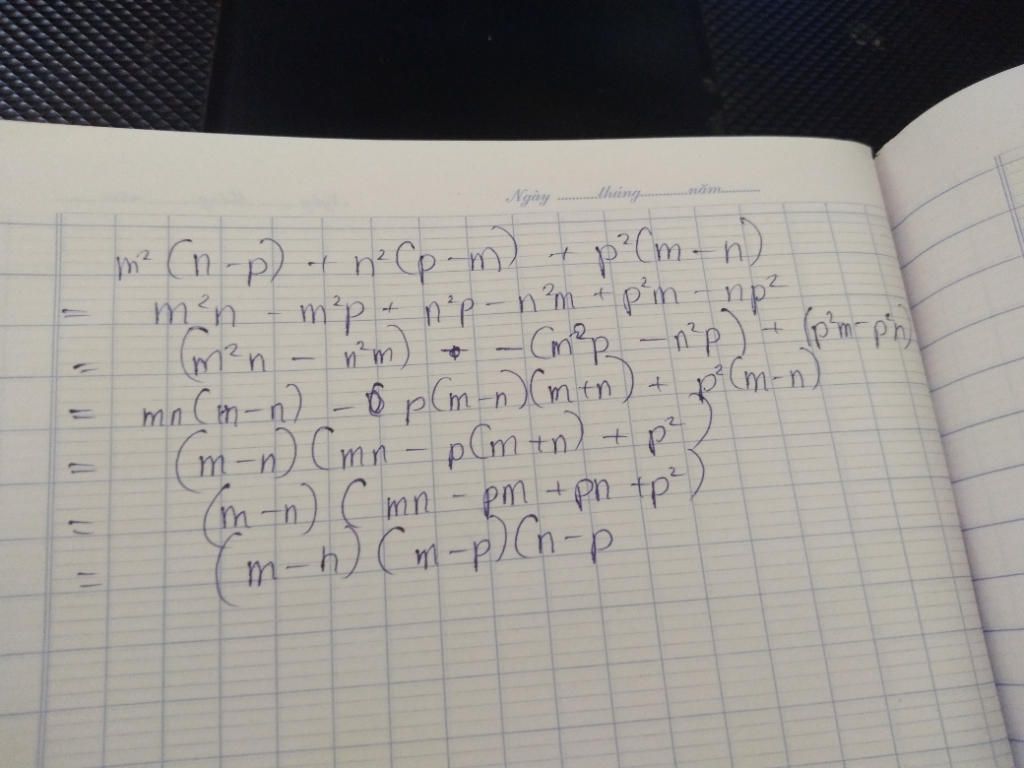 Ngày ..........tháng............năm..........
m² (n - p) + n² (p - m) + p² (m - n)
= m²n - m²p + n²p - n²m + p²m - np²
= (m²n - n²m) + - (m²p - n²p) + (p²m - p²n)
= mn (m - n) - p (m - n) (m + n) + p² (m - n)
= (m - n) (mn - p (m + n) + p²)
= (m - n) (mn - pm + pn + p²)
= (m - n) (m - p) (n - p